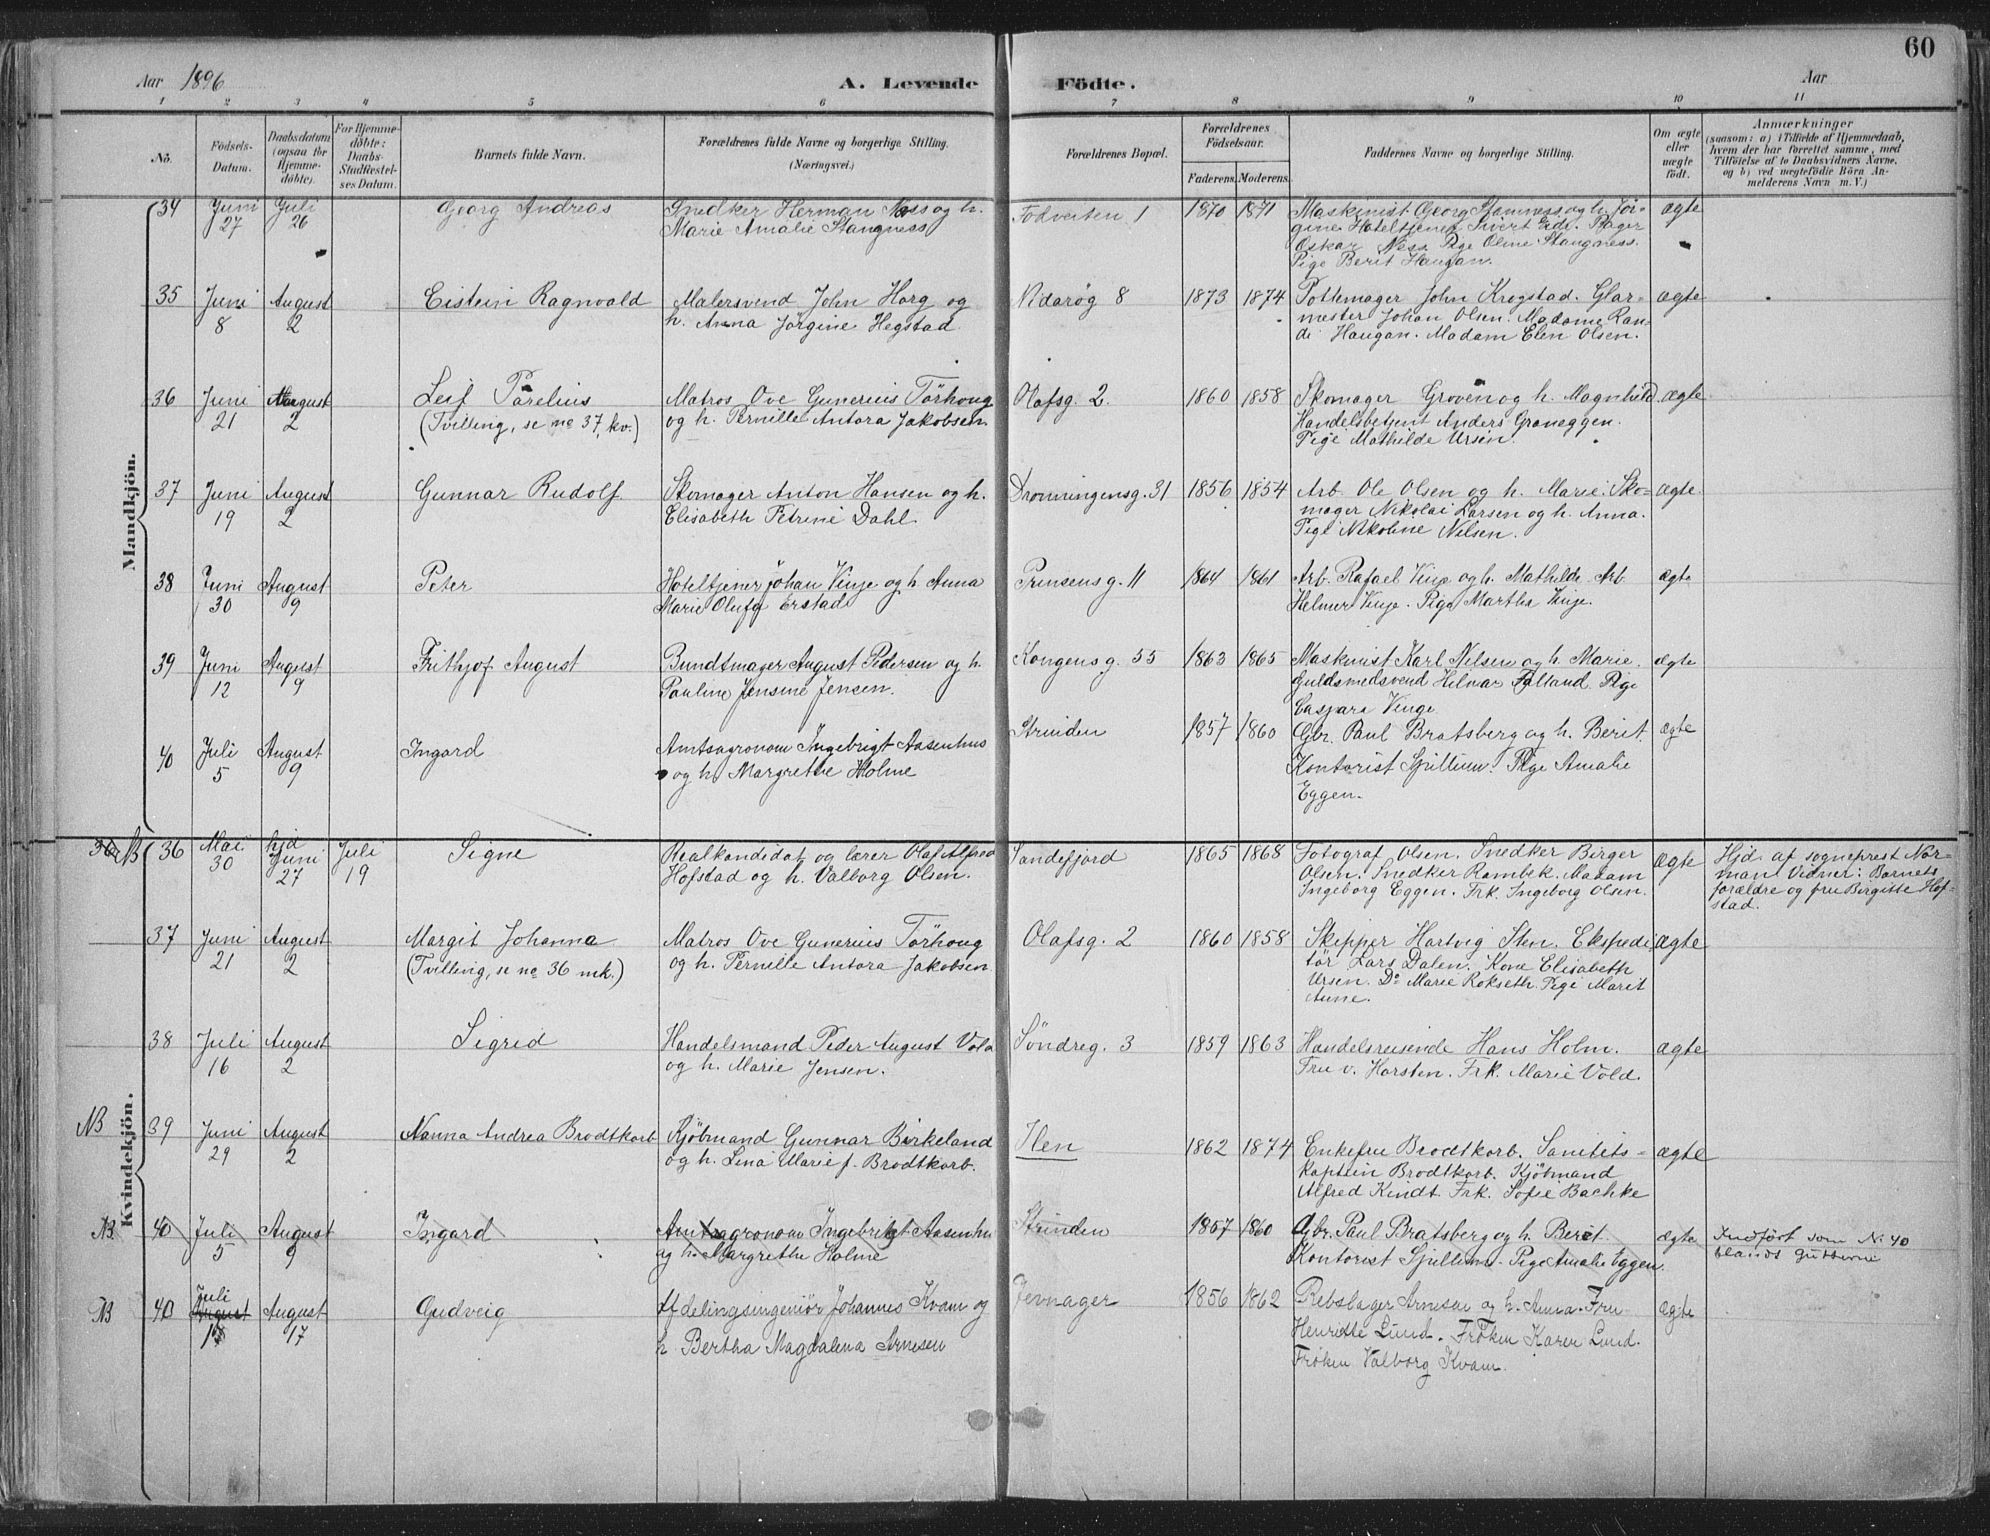 60
Aar 1896
A. Levende Födte.
Aar
1 2 3 4 5 6 7 8 9 10 11
No.
Födsels-Datum.
Daabsdatum (ogsaa for Hjemme-döbte).
For Hjemme-döbte: Daabs-Stadfæstel-ses Datum.
Barnets fulde Navn.
Forældrenes fulde Navne og borgerlige Stilling.
(Næringsvei.)
Forældrenes Bopæl.
Forældrenes Födselsaar.
Faderens. Moderens.
Faddernes Navne og borgerlige Stilling.
Om ægte eller uægte födt.
Anmærkninger
(saasom: a) i Tilfælde af Hjemmedaab,
hvem der har forrettet samme, med
Tilföielse af to Daabsvidners Navne,
og b) ved uægtefödte Börn An-
melderens Navn m. V.)
Mandkjön.
34 Juni 27 Juli 26 Georg Andreas
Snedker Herman Ness og h.
Marie Amalie Stangness
Fodveiten 1 1870 1871
Maskinist Georg Stamness og h. Jör-
gine. Hoteltjener Sivert Eide. Bager
Oskar Ness. Pige Oline Stangness.
Pige Berit Haugan.
ægte
35 Juni 8 August 2 Eistein Ragnvald
Malersvend John Horg og
h. Anna Jörgine Hegstad
Nidarøg 8 1873 1874
Pottemager John Krogstad. Glar-
mester Johan Olsen. Madame Ran-
di Haugan. Madam Elen Olsen.
ægte
36 Juni 21 August 2 Leif Parelius
(Tvilling, se no 37, kv.)
Matros Ove Gunerius Törhoug
og h. Pernille Antora Jakobsen
Olafsg. 2. 1860 1858
Skomager Groven og h. Magnhild.
Handelsbetjent Anders Graneggen.
Pige Mathilde Ursin.
ægte
37 Juni 19 August 2 Gunnar Rudolf
Skomager Anton Hansen og h.
Elisabeth Petrine Dahl.
Dronningensg. 31 1856 1854
Arb. Ole Olsen og h. Marie. Sko-
mager Nikolai Larsen og h. Anna.
Pige Nikoline Nilsen.
ægte
38 Juni 30 August 9 Peter
Hoteltjener Johan Vinje og h. Anna
Marie Olufa Erstad
Prinsensg. 11 1864 1861
Arb. Rafael Vinje og h. Mathilde. Arb.
Helmer Vinje. Pige Martha Vinje.
ægte
39 Juni 12 August 9 Frithjof August
Bundtmager August Pedersen og h.
Pauline Jensine Jensen.
Kongensg. 55 1863 1865
Maskinist Karl Nilsen og h. Marie.
Guldsmedsvend Hilmar Falland. Pige
Caspara Vinge
ægte
40 Juli 5 August 9 Ingard
Amtsagronom Ingebrigt Aasenhus
og h. Margrethe Holme
Strinden 1857 1860
Gbr. Paul Bratsberg og h. Berit.
Kontorist Spillum. Pige Amalie
Eggen.
ægte
Kvindekjön.
NB 36 Mai 30 hjd Juni 27 Juli 19 Signe
Realkandidat og lærer Olaf Alfred
Hofstad og h. Valborg Olsen.
Sandefjord 1865 1868
Fotograf Olsen. Snedker Birger
Olsen. Snedker Rambek. Madam
Ingeborg Eggen. Frk. Ingeborg Olsen.
ægte
Hjd. af sogneprest Nor-
man Vidner: Barnets
forældre og fru Birgitte Hof-
stad.
37 Juni 21 August 2 Margit Johanna
(Tvilling, se no 36 mk.)
Matros Ove Gunerius Törhoug
og h. Pernille Antora Jakobsen
Olafsg. 2 1860 1858
Skipper Hartvig Sten. Ekspedi-
tör Lars Dalen. Kone Elisabeth
Ursen. Do Marie Rokseth. Pige Marit
Aune.
ægte
38 Juli 16 August 2 Sigrid
Handelsmand Peder August Vold
og h. Marie Jensen.
Söndreg. 3 1859 1863
Handelsreisende Hans Holm.
Fru v. Harsten. Frk. Marie Vold.
ægte
NB 39 Juni 29 August 2 Nanna Andrea Brodtkorb
Kjöbmand Gunnar Birkeland
og h. Lina Marie f. Brodtkorb.
Ilen 1862 1874
Enkefru Brodtkorb. Sanitets-
kaptein Brodtkorb. Kjöbmand
Alfred Kindt. Frk. Sofie Bachke
ægte
NB. 40 Juli 5 August 9 Ingard
Amtsagronom Ingebrigt Aasenhu
og h. Margrethe Holme
Strinden 1857 1860
Gbr. Paul Bratsberg og h. Berit.
Kontorist Spillum. Pige Amalie Eggen.
ægte
Indfört som No 40
blandt gutterne
NB 40 Juli August 18 August 17 Gudveig
Afdelingsingeniör Johannes Kvam og
h. Bertha Magdalena Arnesen
Jevnager 1856 1862
Rebslager Arnesen og h. Anna. Fru
Henriette Lund. Fröken Karen Lund.
Fröken Valborg Kvam.
ægte